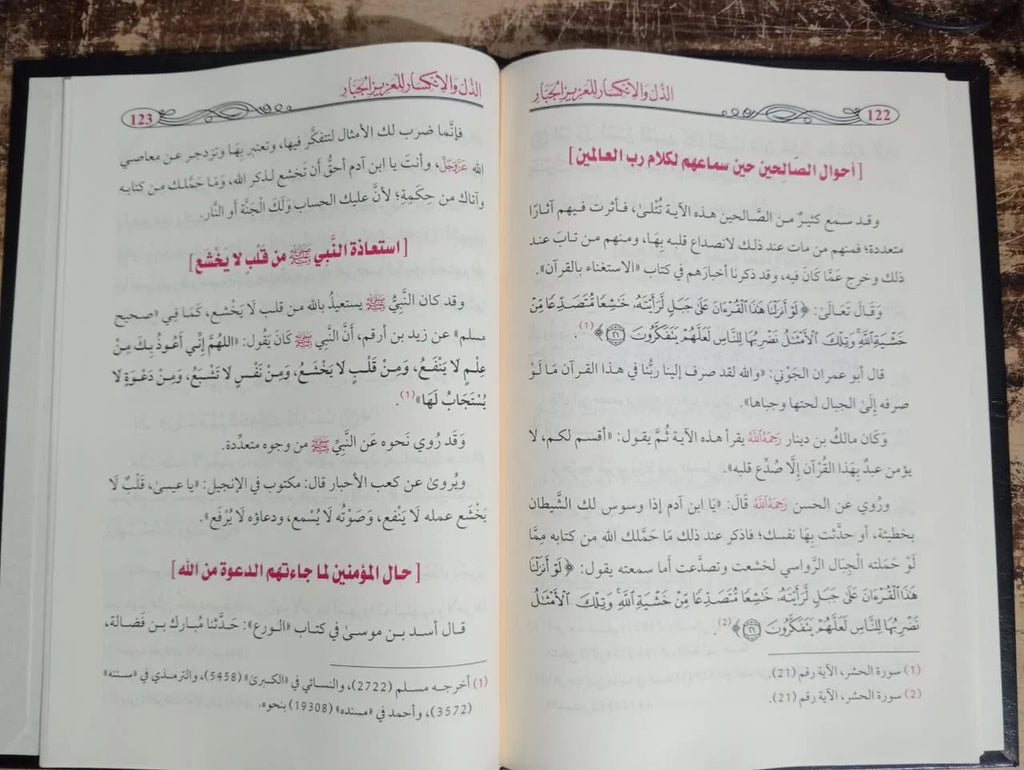 الذل والانكسار للعزيز الجبار
122
[ أحوال الصالحين حين سماعهم لكلام رب العالمين ]
وقد سمع كثيرٌ من الصَّالحين هذه الآية تُتْلىٰ، فأثرت فيهم آثارًا
متعددة؛ فمنهم من مات عند ذلك لانصداع قلبه بِهَا، ومنهم من تابَ عند
ذلك وخرج عمَّا كَانَ فيه، وقد ذكرنا أخبارَهم في كتاب «الاستغناء بالقرآن».
وَقَالَ تَعَالَىٰ: ﴿لَوْ أَنزَلْنَا هَٰذَا الْقُرْءَانَ عَلَىٰ جَبَلٍ لَّرَأَيْتَهُۥ خَٰشِعًا مُّتَصَدِّعًا مِّنْ
خَشْيَةِ اللَّهِ وَتِلْكَ الْأَمْثَٰلُ نَضْرِبُهَا لِلنَّاسِ لَعَلَّهُمْ يَتَفَكَّرُونَ ٢١﴾(1).
قال أبو عمران الجَوْني: «والله لقد صرف إلينا ربُّنا في هذا القرآن مَا لَوْ
صرفه إِلَىٰ الجبال لحتها وجباها».
وَكَان مالكُ بن دينار رَحِمَهُ اللَّهُ يقرأ هذه الآية ثُمَّ يقول: «أقسم لكم، لا
يؤمن عبدٌ بِهَذا القُرْآن إلَّا صُدِّع قلبه».
ورُوي عن الحسن رَحِمَهُ اللَّهُ قَالَ: «يَا ابن آدم إذا وسوس لك الشَّيطان
بخطيئة، أو حدَّثت بِهَا نفسك؛ فاذكر عند ذلك مَا حَمَّلك الله من كتابه مِمَّا
لَوْ حَمَلته الْجِبَال الرَّواسي لخشعت وتصدعت أما سمعته يقول: ﴿لَوْ أَنزَلْنَا
هَٰذَا الْقُرْءَانَ عَلَىٰ جَبَلٍ لَّرَأَيْتَهُۥ خَٰشِعًا مُّتَصَدِّعًا مِّنْ خَشْيَةِ اللَّهِ وَتِلْكَ الْأَمْثَٰلُ
نَضْرِبُهَا لِلنَّاسِ لَعَلَّهُمْ يَتَفَكَّرُونَ ٢١﴾(2).
(1) سورة الحشر، الآية رقم (21).
(2) سورة الحشر، الآية رقم (21).
الذل والانكسار للعزيز الجبار
123
فإنَّما ضرب لك الأمثال لتتفكَّر فيها، وتعتبر بِهَا وتزدجر عن معاصي
الله عَزَّوَجَلَّ، وأنتَ يا ابن آدم أحقُّ أن تَخشع لذكر الله، وَمَا حَمَّلك مِن كتابه
وآتاك من حِكَمِهِ؛ لأنَّ عليك الحساب وَلَكَ الْجَنَّة أو النَّار.
[ استعاذة النَّبِي ﷺ من قَلْبٍ لا يَخْشع ]
وقد كان النَّبِيُّ ﷺ يستعيذُ بالله من قلب لَا يَخْشع، كَمَا فِي «صحيح
مسلم» عن زيد بن أرقم، أنَّ النَّبي ﷺ كَانَ يَقُول: «اللهمَّ إِنِّي أَعُوذُ بِكَ مِنْ
عِلْمٍ لَا يَنْفَعُ، وَمِنْ قَلْبٍ لا يَخْشَعُ، وَمِنْ نَفْسٍ لَا تَشْبَعُ، وَمِنْ دَعْوَةٍ لَا
يُسْتَجَابُ لَهَا»(1).
وَقَد رُوي نَحوه عَن النَّبِيِّ ﷺ من وجوه متعدِّدة.
ويُروىٰ عن كعب الأحبار قال: مكتوب في الإنجيل: «يا عيسىٰ، قَلْبٌ لَا
يَخْشَع عمله لَا يَنْفع، وَصَوْتُه لَا يُسْمع، ودعاؤه لَا يُرْفَع».
[ حال المؤمنين لما جاءتهم الدعوة من الله ]
قال أسد بن موسىٰ في كتاب «الورع»: حَدَّثَنا مُبارك بن فَضَالة،
(1) أخرجه مسلم (2722)، والنسائي في «الكبرىٰ» (5458)، والترمذي في «سننه»
(3572)، وأحمد في «مسنده» (19308) بنحوه.